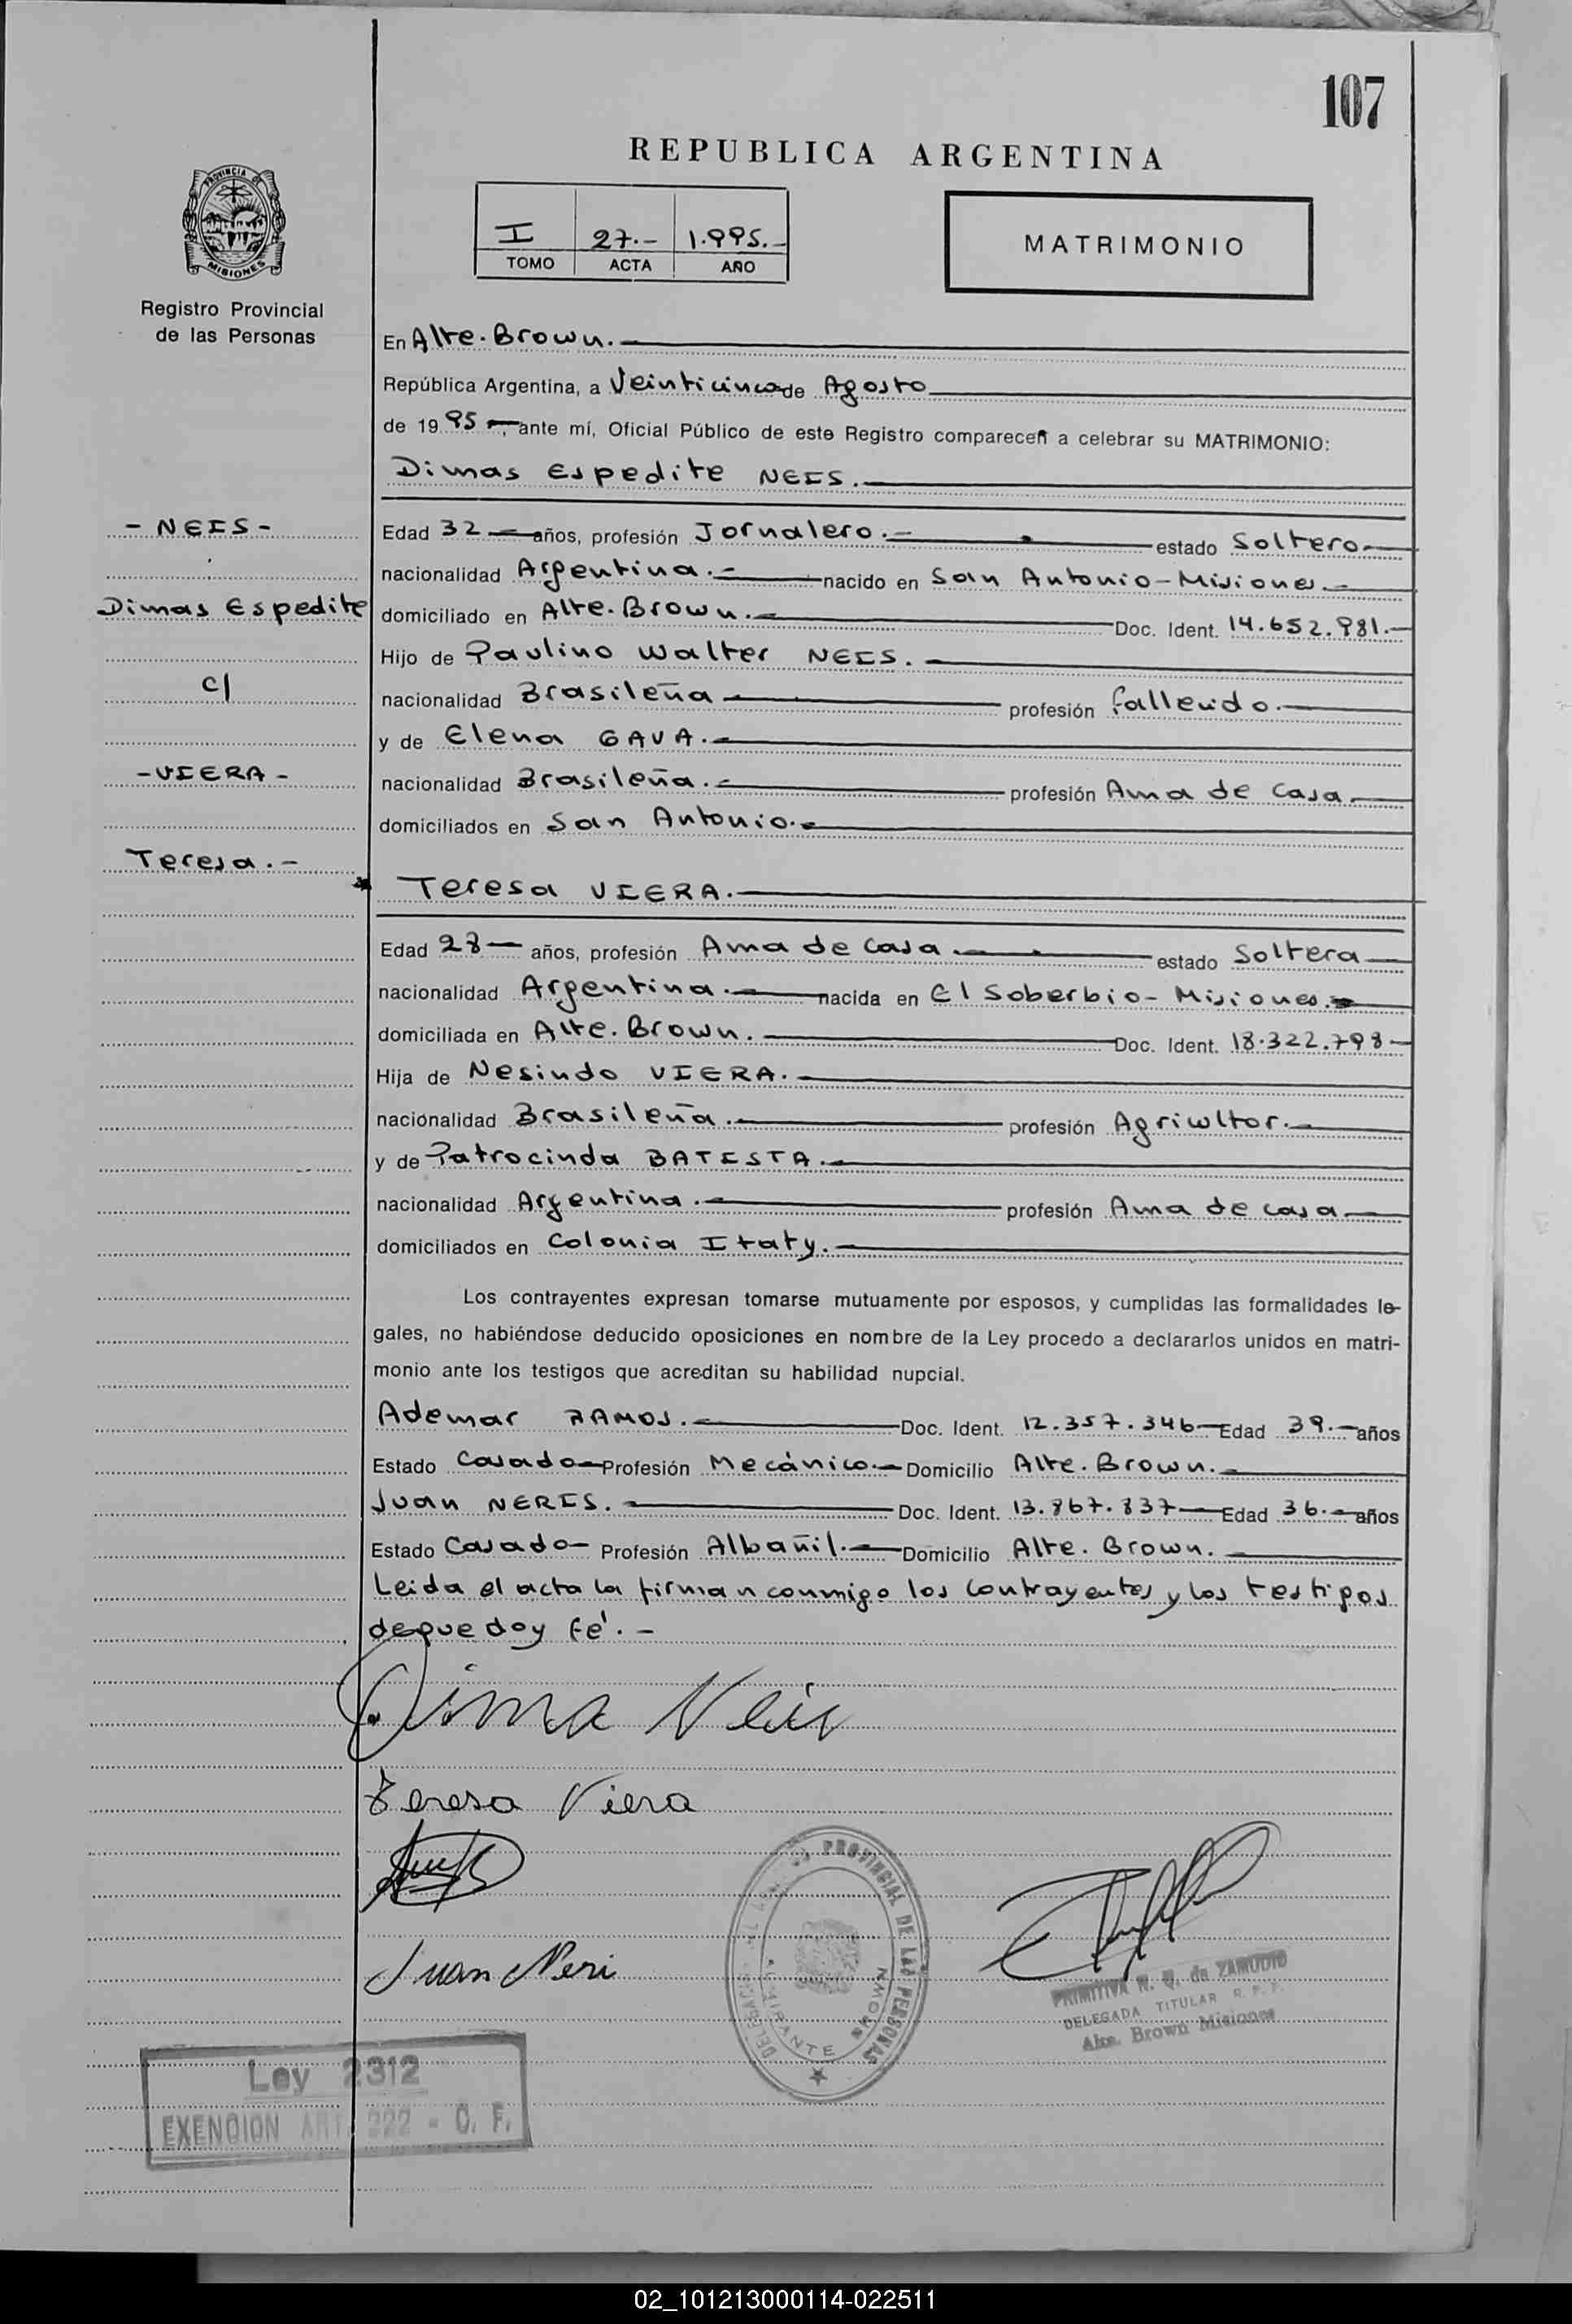 107
REPUBLICA ARGENTINA
I 27.- 1.995.-
TOMO ACTA AÑO
MATRIMONIO
PROVINCIA DE
MISIONES
Registro Provincial
de las Personas
En Alte. Brown.
República Argentina, a Veinticinco de Agosto
de 1995, ante mí, Oficial Público de este Registro comparecen a celebrar su MATRIMONIO:
Dimas Espedite NEIS.
- NEIS -
Edad 32 años, profesión Jornalero.- estado Soltero
nacionalidad Argentina.- nacido en San Antonio-Misiones
Dimas Espedite
domiciliado en Alte. Brown.- Doc. Ident. 14.652.981.-
Hijo de Paulino Walter NEIS.-
c/
nacionalidad Brasileña profesión fallecido.
y de Elena GAVA.-
-VIERA-
nacionalidad Brasileña.- profesión Ama de Casa
domiciliados en San Antonio.-
Teresa.-
Teresa VIERA.
Edad 28 años, profesión Ama de Casa estado Soltera
nacionalidad Argentina.- nacida en El Soberbio- Misiones.
domiciliada en Alte. Brown. Doc. Ident. 18.322.798
Hija de Nesindo VIERA.
nacionalidad Brasileña. profesión Agricultor.
y de Patrocinda BATISTA.
nacionalidad Argentina. profesión Ama de casa
domiciliados en Colonia Itaty.-
Los contrayentes expresan tomarse mutuamente por esposos, y cumplidas las formalidades le-
gales, no habiéndose deducido oposiciones en nombre de la Ley procedo a declararlos unidos en matri-
monio ante los testigos que acreditan su habilidad nupcial.
Ademar RAMOS.- Doc. Ident. 12.357.346 Edad 39.- años
Estado Casado Profesión Mecánico.- Domicilio Alte. Brown.-
Juan NERIS.- Doc. Ident. 13.867.837 Edad 36.- años
Estado Casado Profesión Albañil.- Domicilio Alte. Brown.
Leida el acta la firman conmigo los contrayentes y los testigos
de que doy fé.-
Dima Neis
Teresa Viera
Juan Neri
PROVINCIAL DE LAS PERSONAS
ALMIRANTE BROWN
PRIMITIVA R. Q. de ZAMUDIO
DELEGADA TITULAR R. P. P.
Alte. Brown Misiones
Ley 2312
EXENCION ART. 222 - C. F.
02_101213000114-022511